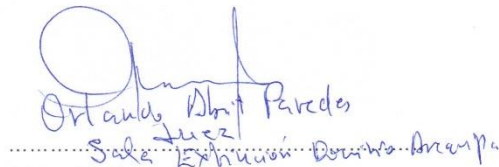 Orlando Abril Paredes
Juez
Sala Extinción Dominio Arequipa